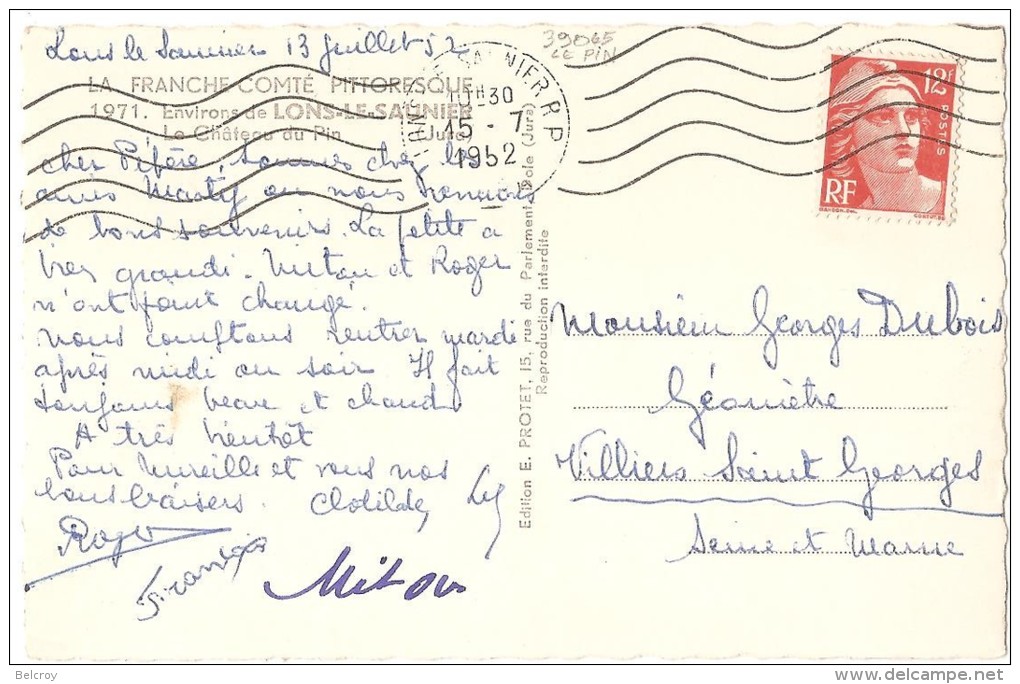 Lons le Saunier 13 Juillet 52
LA FRANCHE-COMTÉ PITTORESQUE
1971. Environs de LONS-LE-SAUNIER
Le Château du Pin (Jura)
cher Pépère, Sommes chez les
amis Masty où nous
de bons souvenirs. La petite a
très grandi. et Roger
n'ont point changé.
Nous comptons rentrer mardi
après midi ou soir Il fait
toujours beau et chaud
A très bientôt
Pour Mireille et vous nos
bons baisers. Clotilde,
Roger
Francis
Mitou
Edition E. PROTET, 15, rue du Parlement, Dole (Jura)
Reproduction interdite
39065
LE PIN
SAUNIER R.P.
30
15-7
1952
12F
POSTES
RF
Monsieur Georges Dubois
Géomètre
Villiers Saint Georges
Seine et Marne
Belcroy
www.delcampe.net